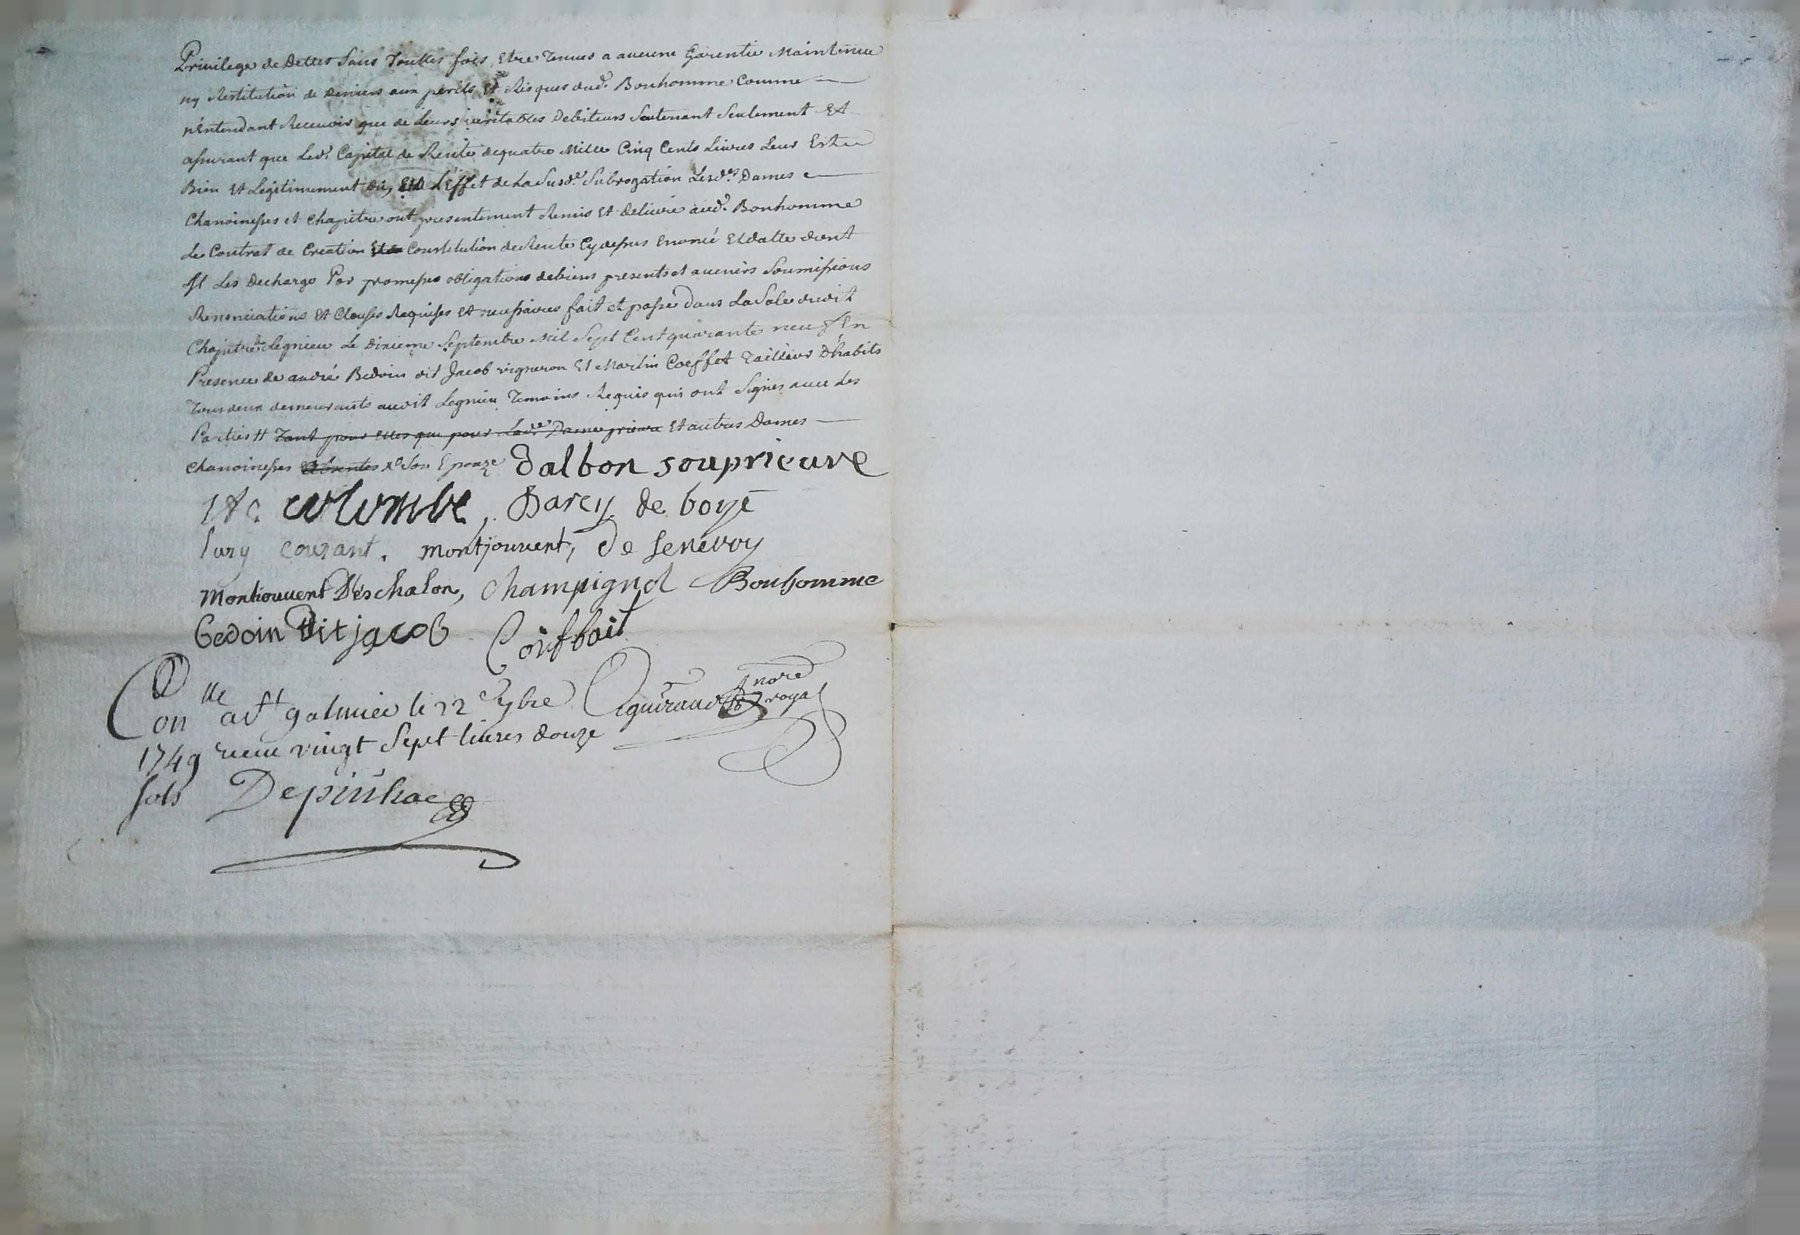 Privilege de Dettes Sans Touttes fois Etre Tenues a aucune Garentie Maintenue
ny Restitution de Deniers aux perils Et Risques dud.t Bonhomme Comme
n'Entendant Recevoir que de Leurs veritables Debiteurs Soutenant Seulement Et
assurant que Led.t Capital de Rente de quatre Mille Cinq Cents Livres Leur Est
Bien Et Legitimement dû, L'Effet de La Susd.e Subrogation Lesd.es Dames
Chanoinesses et Chapitre ont presentement Remis Et delivré aud.t Bonhomme
Le Contrat de Creation Constitution de Rente Cy dessus Enoncé Et datté dont
Il Les decharge Par promesses obligations de biens presents et avenirs Soumissions
Renonciations Et Clauses Requises Et necessaires fait et passé dans La Sale dudit
Chapitre Legnieu Le Dixieme Septembre Mil Sept Cent quarante neuf En
Presence de andré Bedoin dit Jacob vigneron Et Martin Coeffet Tailleur D'habits
Tous deux demeurants audit Legnieu Temoins Requis qui ont Signes avec Les
Parties # Tant pour Elles que pour Lad.e Dame prieure Et autres Dames
chanoinesses absentes & Son Epouze Dalbon souprieure
Ste colombe, Darcy de boye
Lury courant, montjouvent, De Senevoy
montiouvent Deschalon, Champignol Bonhomme
Bedoin Dit jacob Coiffait
Con.lle a S.t galmiée le 22 7bre
1749 recu vingt Sept livres douze
sols Depinhac